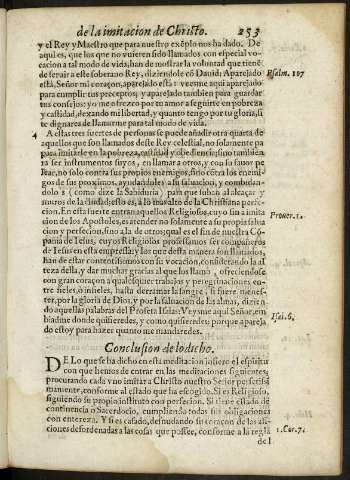 de la imitacion de Christo. 253
y el Rey y Maestro que para nuestro exẽplo nos ha dado. De
aqui es, que los que no vuieren sido llamados con especial vo-
cacion a tal modo de vida, han de mostrar la voluntad que tienẽ
de seruir a este soberano Rey, diziendole cõ Dauid: Aparejado
està, Señor mi coraçon, aparejado està: veysme aqui aparejado
Psalm. 107
para cumplir tus preceptos, y aparejado tambien para guardar
tus consejos: yo me ofrezco por tu amor a seguirte en pobreza
y castidad, dexando mi libertad, y quanto tengo por tu gloria, si
te dignares de llamarme para tal modo de vida.
4 A estas tres suertes de personas se puede añadir otra quarta de
aquellos que son llamados deste Rey celestial, no solamente pa
ra imitarle en la pobreza, castidad y obediencia, sino tambiẽ pa
ra ser instrumentos suyos, en llamar a otros, y con su fauor pe
lear, no solo contra sus propios enemigos, sino cõtra los enemi-
gos de sus proximos, ayudandoles a su saluacion, y combidan-
dolos (como dize la Sabiduria) para que suban al alcaçar y
muros de la ciudad; esto es, a lo mas alto de la Christiana perfec-
cion. En esta suerte entran aquellos Religiosos, cuyo fin a imita
Prouer. 1.
cion de los Apostoles, es atender no solamente a su propia salua
cion y perfecion, sino a la de otros; qual es el fin de nuestra Cõ-
pañia de Iesus, cuyos Religiosos professamos ser compañeros
de Iesus en esta empressa: y los que desta manera son llamados,
han de estar contentissimos con su vocacion, considerando la al
teza della, y dar muchas gracias al que los llamò, ofreciendose
con gran coraçon a qualesquier trabajos y peregrinaciones en-
tre fieles, o infieles, hasta derramar la sangre, si fuere menes-
ter, por la gloria de Dios, y por la saluacion de las almas, dizien
do aquellas palabras del Profeta Isaias: Veysme aqui Señor, em
Isai. 6.
biadme donde quisieredes, y como quisieredes: porque apareja
do estoy para hazer quanto me mandaredes.
Conclusion de lo dicho.
DE Lo que se ha dicho en esta meditacion infiere el espiritu
con que hemos de entrar en las meditaciones siguientes,
procurando cada vno imitar a Christo nuestro Señor perfetissi
mamente, conforme al estado que ha escogido. Si es Religioso,
siguiendo su propio instituto con perfecion. Si tiene estado de
continencia o Sacerdocio, cumpliendo todas sus obligaciones
con entereza. Y si es casado, desnudando su coraçon de las afi-
ciones desordenadas a las cosas que possee, conforme a la regla
1. Cor. 7.
de l